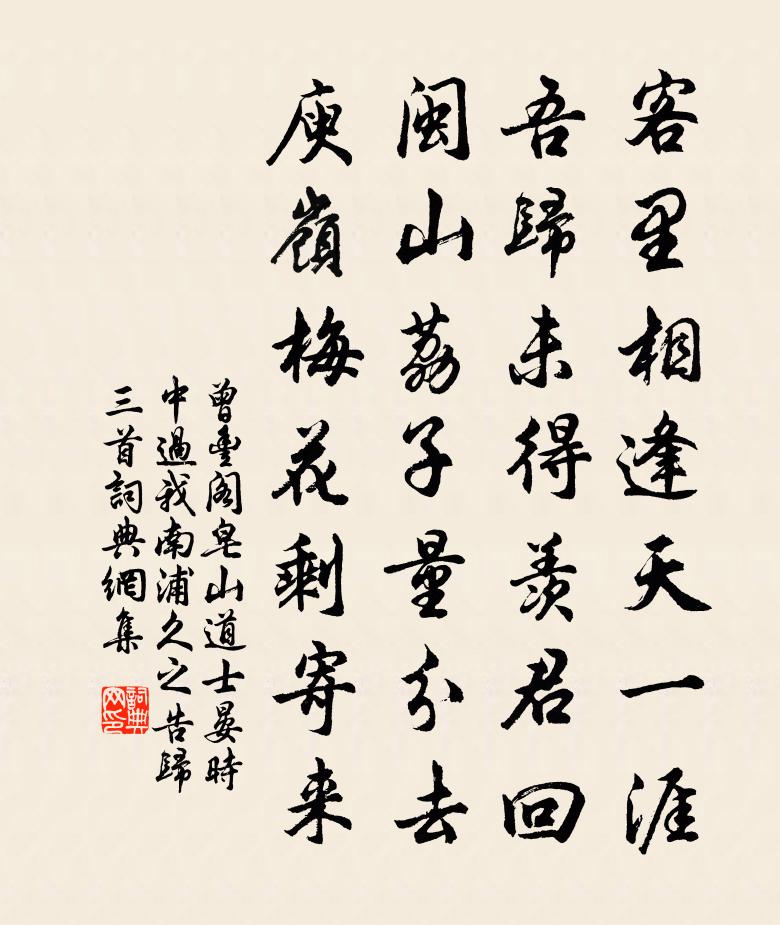 客里相逢天一涯
吾歸未得羨君回
閩山荔子量分去
庾嶺梅花剩寄来
曾豐閣皂山道士晏時
中過我南浦久之告歸
三首詞典網集
詞典網印